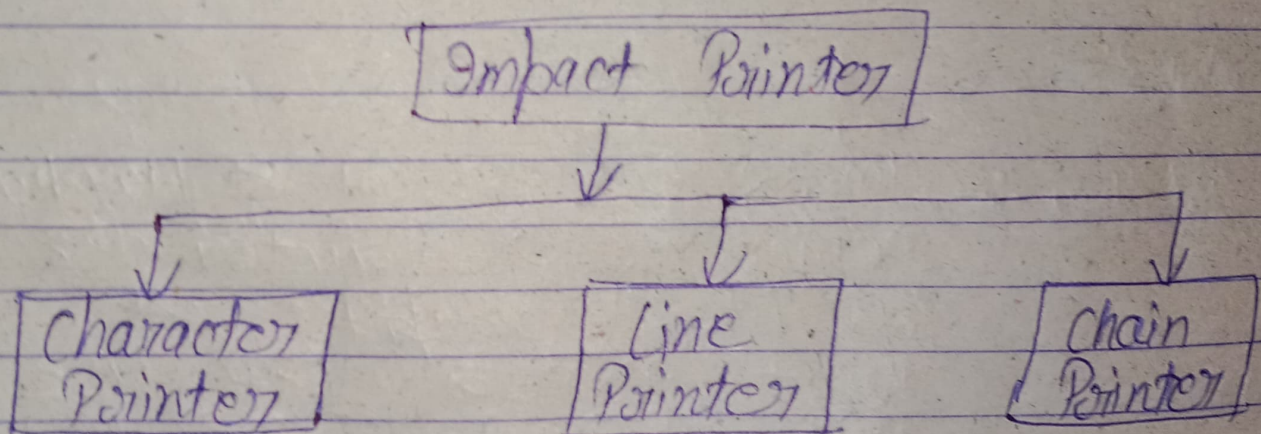 Impact Printer
Character
Printer
Line
Printer
Chain
Printer